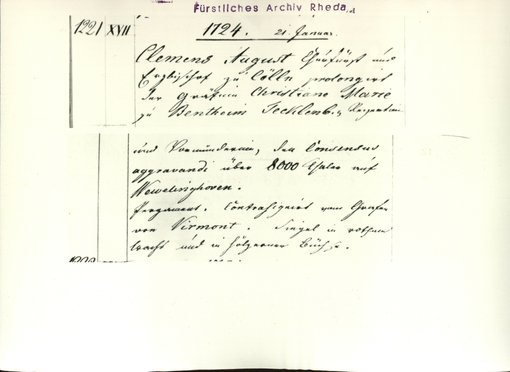 Fürstliches Archiv Rheda
1221 XVII 1724. 21. Januar
Clemens August Churfürst und
Erzbischof zu Cölln prolongirt
der Gräfin Christiane Marie
zu Bentheim Tecklenb.
und Vormünderin, den Consensus
aggravandi über 8000 Thaler auf
Wevelinghoven.
Pergament. Contrasignirt vom Grafen
von Virmont. Siegel in rothem
Wachs und in hölzerner Büchse.